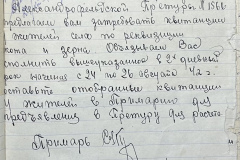 Александрофельдской Претуры N 1566
предлагаем вам затребовать квитанции
жителей села по реквизиции
скота и зерна. Обязываем Вас
исполнить вышеуказанное в 2х дневный
срок начиная с 24 по 26 августа 42 г.
оставьте отобранные квитанции
у жителей в Примарии для
предъявления в Претуру для расчета
Примарь